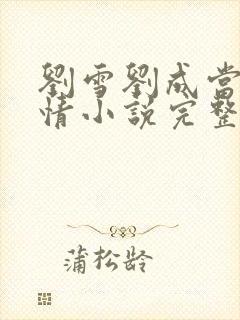 劉雪劉成當
情小說完整
蒲松龄